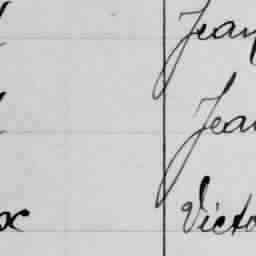 Jean
Jean
x Victo